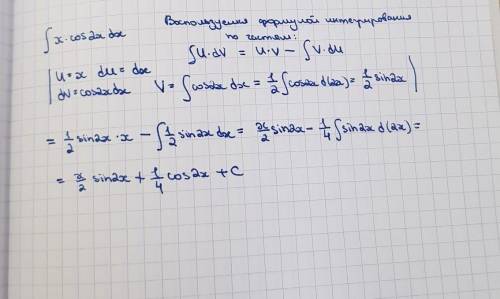 ∫x·cos2x dx
Воспользуемся формулой интегрирования
по частям:
∫U·dV = U·V − ∫V·dU
| U=x dU=dx
dV=cos2xdx V=∫cos2x dx = 1/2 ∫cos2x d(2x) = 1/2 sin2x |
= 1/2 sin2x·x − ∫1/2 sin2x dx = x/2 sin2x − 1/4 ∫sin2x d(2x) =
= x/2 sin2x + 1/4 cos2x + C